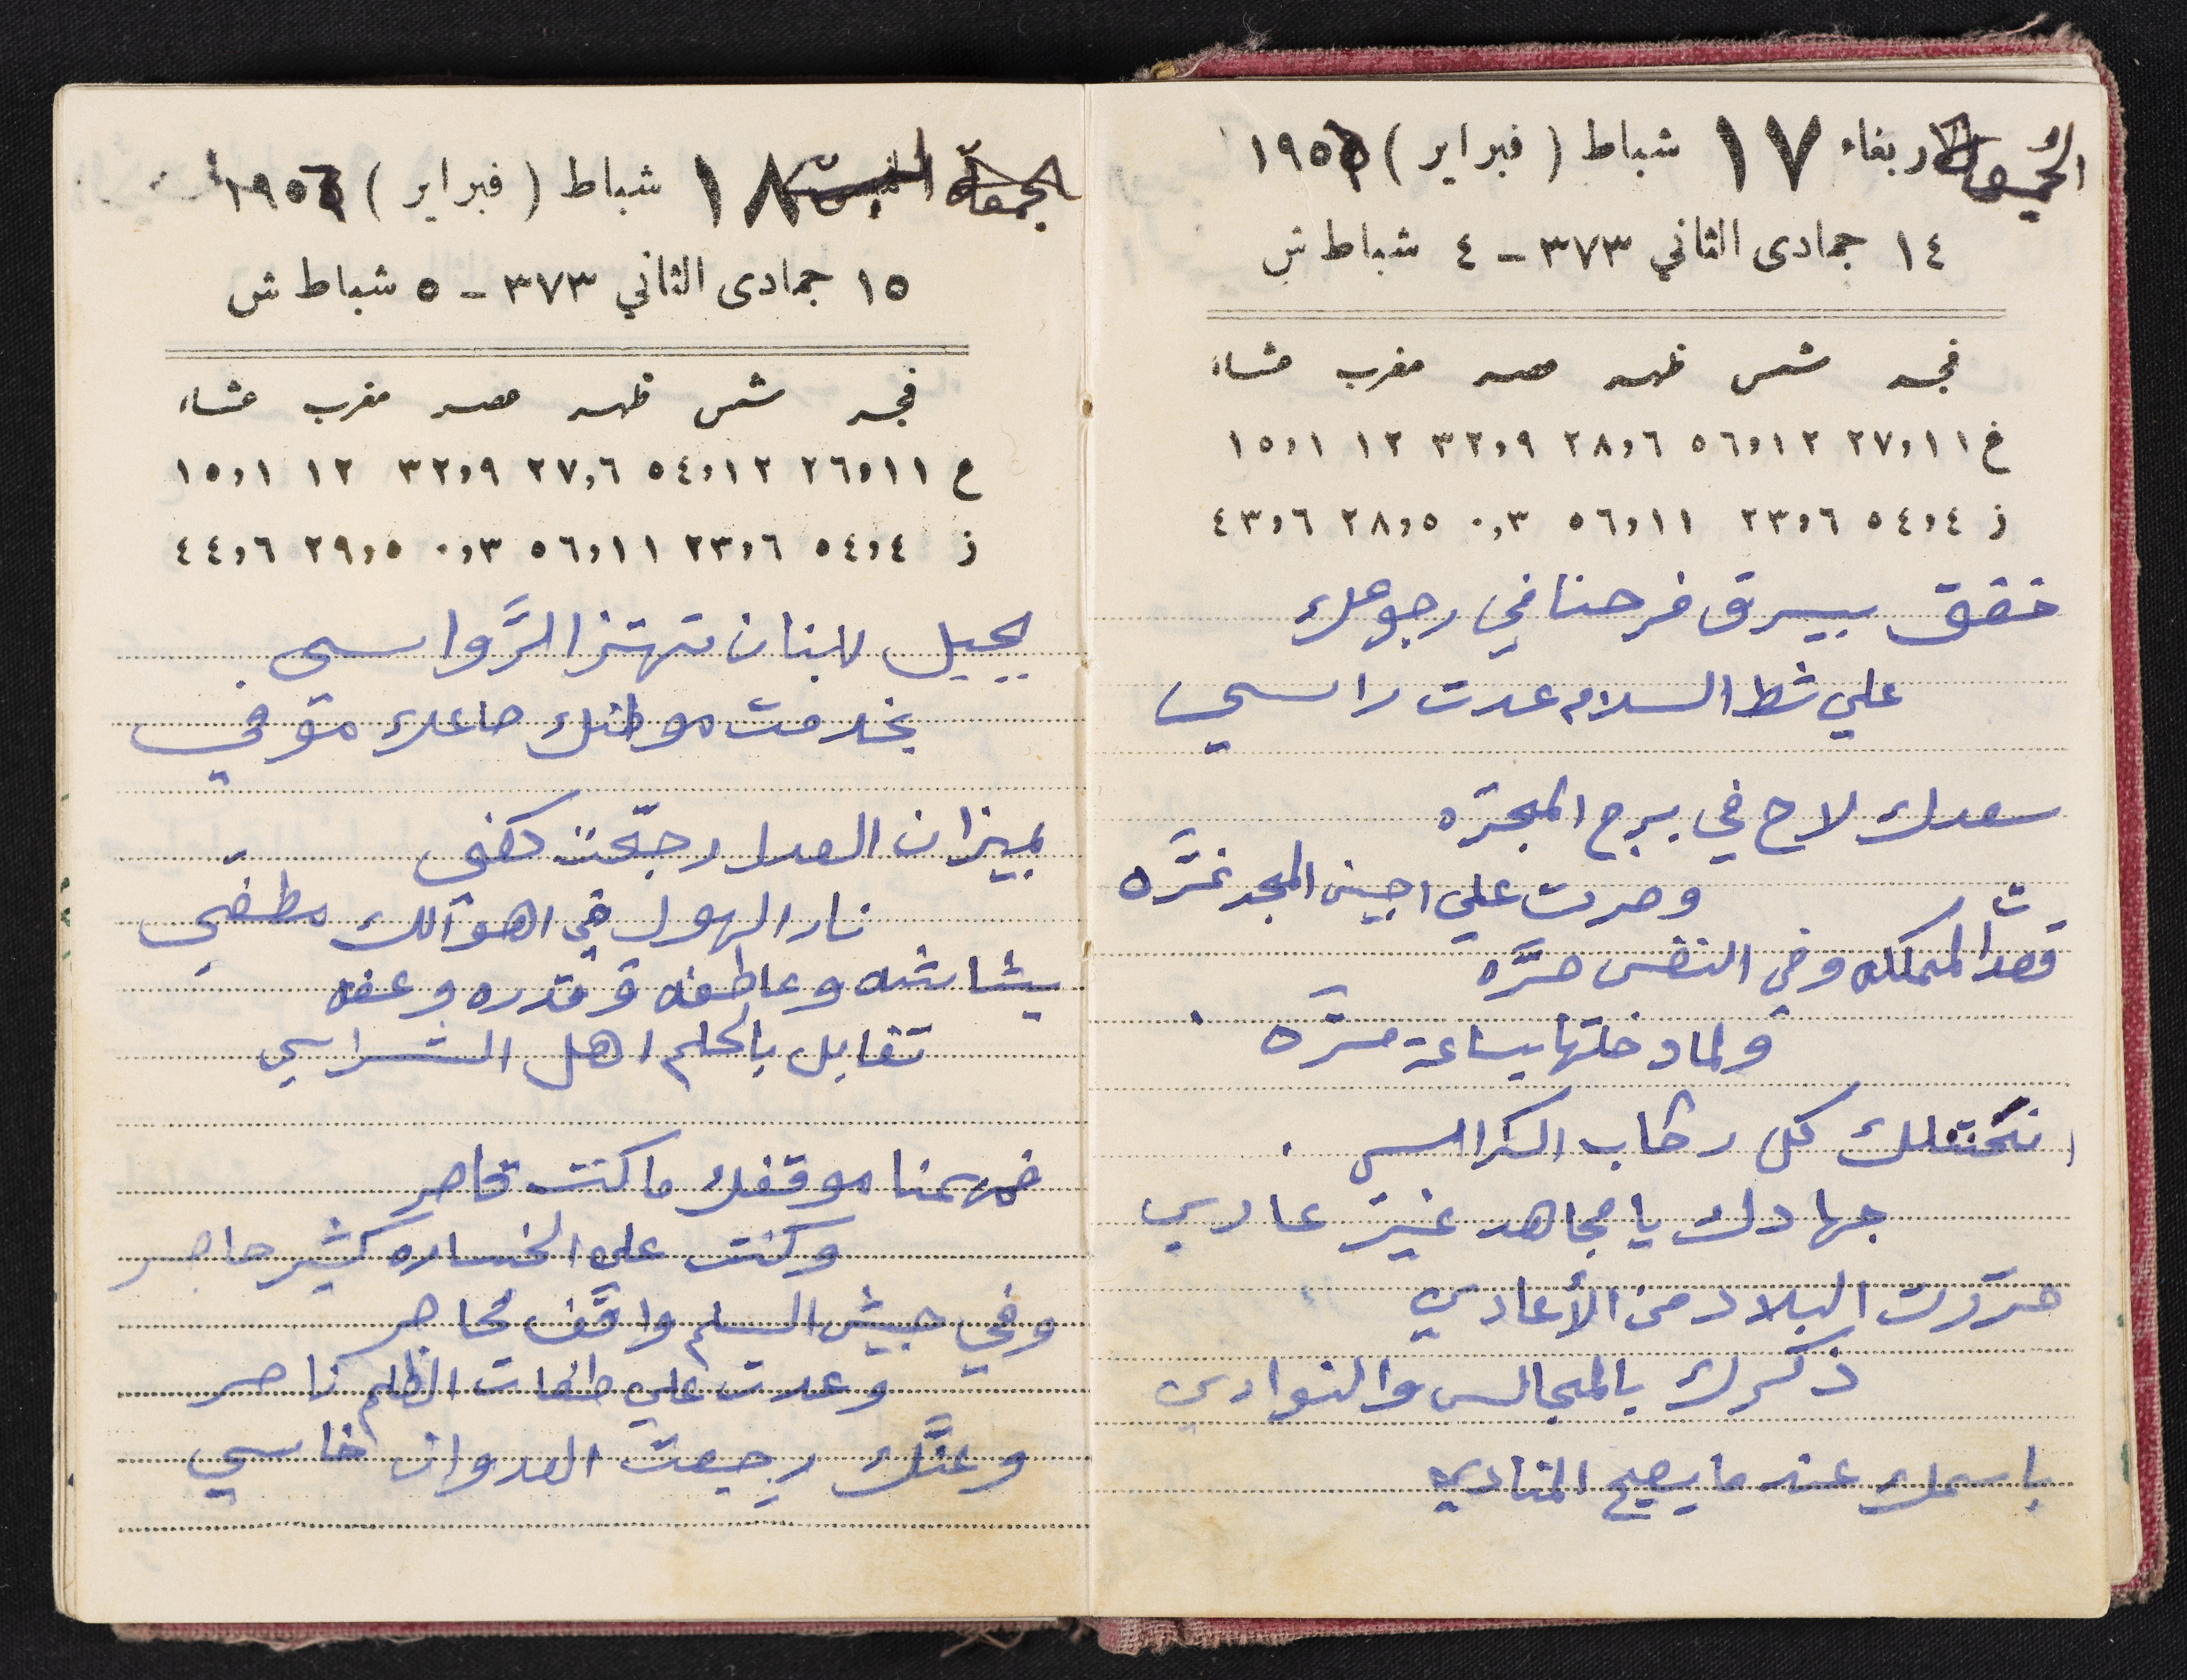 الجمعة الاربعاء ١٧ شباط ( فبراير ) ١٩٥٦
١٤ جمادى الثاني ٣٧٣ - ٤ شباط ش
فجر شمس ظهر عصر مغرب عشاء
غ ٢٧،١١ ٥٦،١٢ ٢٨،٦ ٣٢،٩ ١٢ ١٥،١
ز ٥٤،٤ ٢٣،٦ ٥٦،١١ ٠،٣ ٢٨،٥ ٤٣،٦
خفق بيرق فرحنا في رجوعك
علي شط السلام عدت راسي
سعدك لاح في برج المجرّه
وصرت علي اجبين المجد غرَّه
قصدت المملكه وفي النفس حرَّه
ولما دخلتها بساعة مسرَّه
انحنتلك كل ركاب الكراسي
جهادك يا مجاهد غير عادي
حرّرت البلاد من الأعادي
ذكرك بالمجالس والنوادي
باسمك عند ما يصيح المنادي
الجمعة الخميس ١٨ شباط ( فبراير ) ١٩٥٦
١٥ جمادى الثاني ٣٧٣ - ٥ شباط ش
فجر شمس ظهر عصر مغرب عشاء
ع ٢٦،١١ ٥٤،١٢ ٢٧،٦ ٣٢،٩ ١٢ ١٥،١
ز ٥٤،٤ ٢٣،٦ ٥٦،١١ ٠،٣ ٢٩،٥ ٤٤،٦
بجبل لبنان تهتز الرَّواسي
بخدمت موطنك صاعك موفي
بميزان العدل رجّحت كفي
نار الهول في اهوالك مطفي
بشاشه وعاطفه وقدره وعفه
تقابل بالحلم اهل الشراسي
فهمنا موقفك ما كنت قاصر
وكنت علي الخساره كثير حاصر
وفي جيش السلم واقف محاصر
وعدت علي طغات الظلم ناصر
وعنَّك رجعت العدوان خاسي